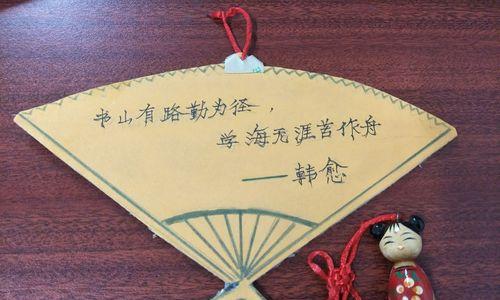 书山有路勤为径，
学海无涯苦作舟
——韩愈